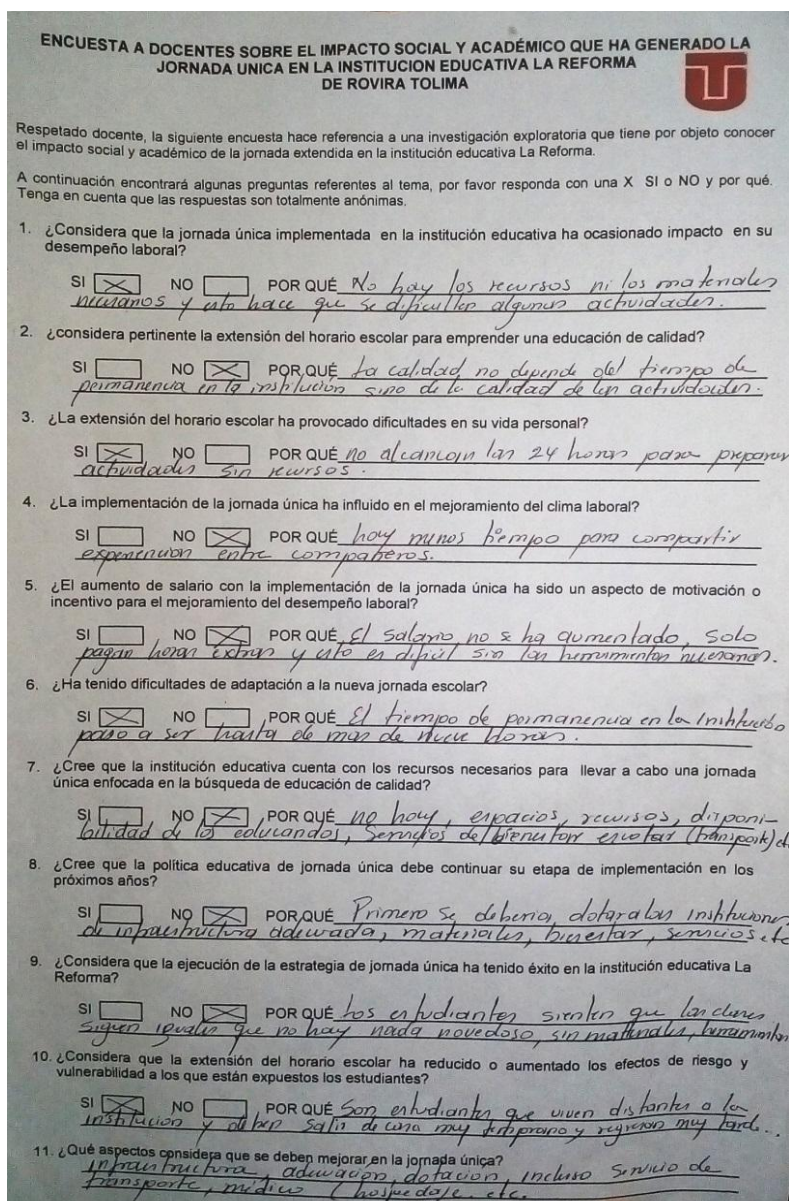 ENCUESTA A DOCENTES SOBRE EL IMPACTO SOCIAL Y ACADÉMICO QUE HA GENERADO LA
JORNADA UNICA EN LA INSTITUCION EDUCATIVA LA REFORMA
DE ROVIRA TOLIMA
Respetado docente, la siguiente encuesta hace referencia a una investigación exploratoria que tiene por objeto conocer
el impacto social y académico de la jornada extendida en la institución educativa La Reforma.
A continuación encontrará algunas preguntas referentes al tema, por favor responda con una X SI o NO y por qué.
Tenga en cuenta que las respuestas son totalmente anónimas.
1. ¿Considera que la jornada única implementada en la institución educativa ha ocasionado impacto en su
desempeño laboral?
SI X NO POR QUÉ No hay los recursos ni los materiales
necesarios y esto hace que se dificulten algunas actividades.
2. ¿considera pertinente la extensión del horario escolar para emprender una educación de calidad?
SI NO X POR QUÉ La calidad no depende del tiempo de
permanencia en la institución sino de la calidad de las actividades.
3. ¿La extensión del horario escolar ha provocado dificultades en su vida personal?
SI X NO POR QUÉ no alcanzan las 24 horas para preparar
actividades sin recursos.
4. ¿La implementación de la jornada única ha influido en el mejoramiento del clima laboral?
SI NO X POR QUÉ hay menos tiempo para compartir
experiencias entre compañeros.
5. ¿El aumento de salario con la implementación de la jornada única ha sido un aspecto de motivación o
incentivo para el mejoramiento del desempeño laboral?
SI NO X POR QUÉ El salario no se ha aumentado, solo
pagan horas extras y esto es difícil sin las herramientas necesarias.
6. ¿Ha tenido dificultades de adaptación a la nueva jornada escolar?
SI X NO POR QUÉ El tiempo de permanencia en la Institución
paso a ser hasta de mas de nueve horas.
7. ¿Cree que la institución educativa cuenta con los recursos necesarios para llevar a cabo una jornada
única enfocada en la búsqueda de educación de calidad?
SI NO X POR QUÉ no hay, espacios, recursos, disponi-
bilidad de los educandos, servicios de bienestar escolar (transporte) et
8. ¿Cree que la política educativa de jornada única debe continuar su etapa de implementación en los
próximos años?
SI NO X POR QUÉ Primero se deberia dotar a las instituciones
de infraestructura adecuada, materiales, bienestar, servicios etc
9. ¿Considera que la ejecución de la estrategia de jornada única ha tenido éxito en la institución educativa La
Reforma?
SI NO X POR QUÉ Los estudiantes sienten que las clases
siguen iguales que no hay nada novedoso, sin materiales, herramientas
10. ¿Considera que la extensión del horario escolar ha reducido o aumentado los efectos de riesgo y
vulnerabilidad a los que están expuestos los estudiantes?
SI X NO POR QUÉ Son estudiantes que viven distantes a la
institución y deben salir de casa muy temprano y regresan muy tarde.
11. ¿Qué aspectos considera que se deben mejorar en la jornada única?
infraestructura, adecuación, dotación, incluso servicio de
transporte, médico, hospedaje, etc.